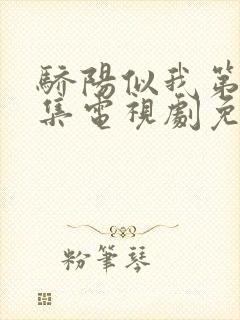 驕陽似我第
集電視劇免
粉筆琴